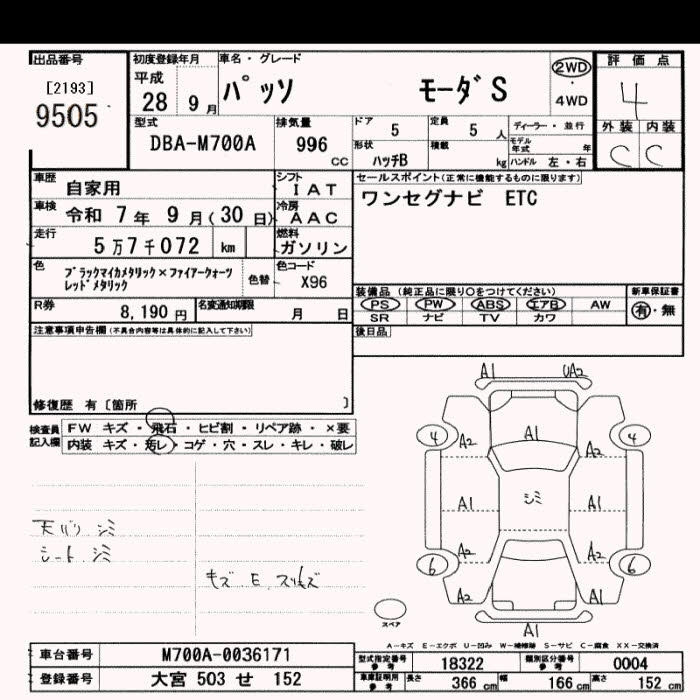 出品番号
[2193]
9505
初度登録年月
平成
28 9 月
車名・グレード
パッソ モーダS
2WD
・
4WD
評価点
4
外装 内装
C C
型式
DBA-M700A
排気量
996 cc
ドア 5
定員 5 人
ディーラー・並行
形状 ハッチB
積載 kg
モデル年式 年
ハンドル 左・右
車歴 自家用
シフト IAT
車検 令和 7 年 9 月(30 日)
冷房 AAC
走行 5 万 7 千 072 km
燃料 ガソリン
色 ブラックマイカメタリック×ファイアークォーツ
レッドメタリック
色替
色コード X96
R券 8,190 円
名変通知期限 月 日
セールスポイント(正常に機能するものに限ります)
ワンセグナビ ETC
装備品 (純正品に限り○をつけてください)
新車保証書
PS PW ABS エアB AW
SR ナビ TV カワ
有・無
後日品
注意事項申告欄(不具合内容等は具体的に記入して下さい)
修復歴 有〔箇所 〕
検査員記入欄
FW キズ・飛石・ヒビ割・リペア跡・×要
内装 キズ・汚レ・コゲ・穴・スレ・キレ・破レ
天バリ シミ
シート シミ
キズ E スリキズ
A1 UA2
4 A2 A1 A2 4
A1 シミ A1
A2 A2
6 6
A2 A1
A1
スペア
A-キズ E-エクボ U-凹み W-補修跡 S-サビ C-腐食 XX-交換済
車台番号 M700A-0036171
登録番号 大宮 503 せ 152
型式指定番号 参考 18322
類別区分番号 参考 0004
車庫証明用 参考
長さ 366 cm
幅 166 cm
高さ 152 cm